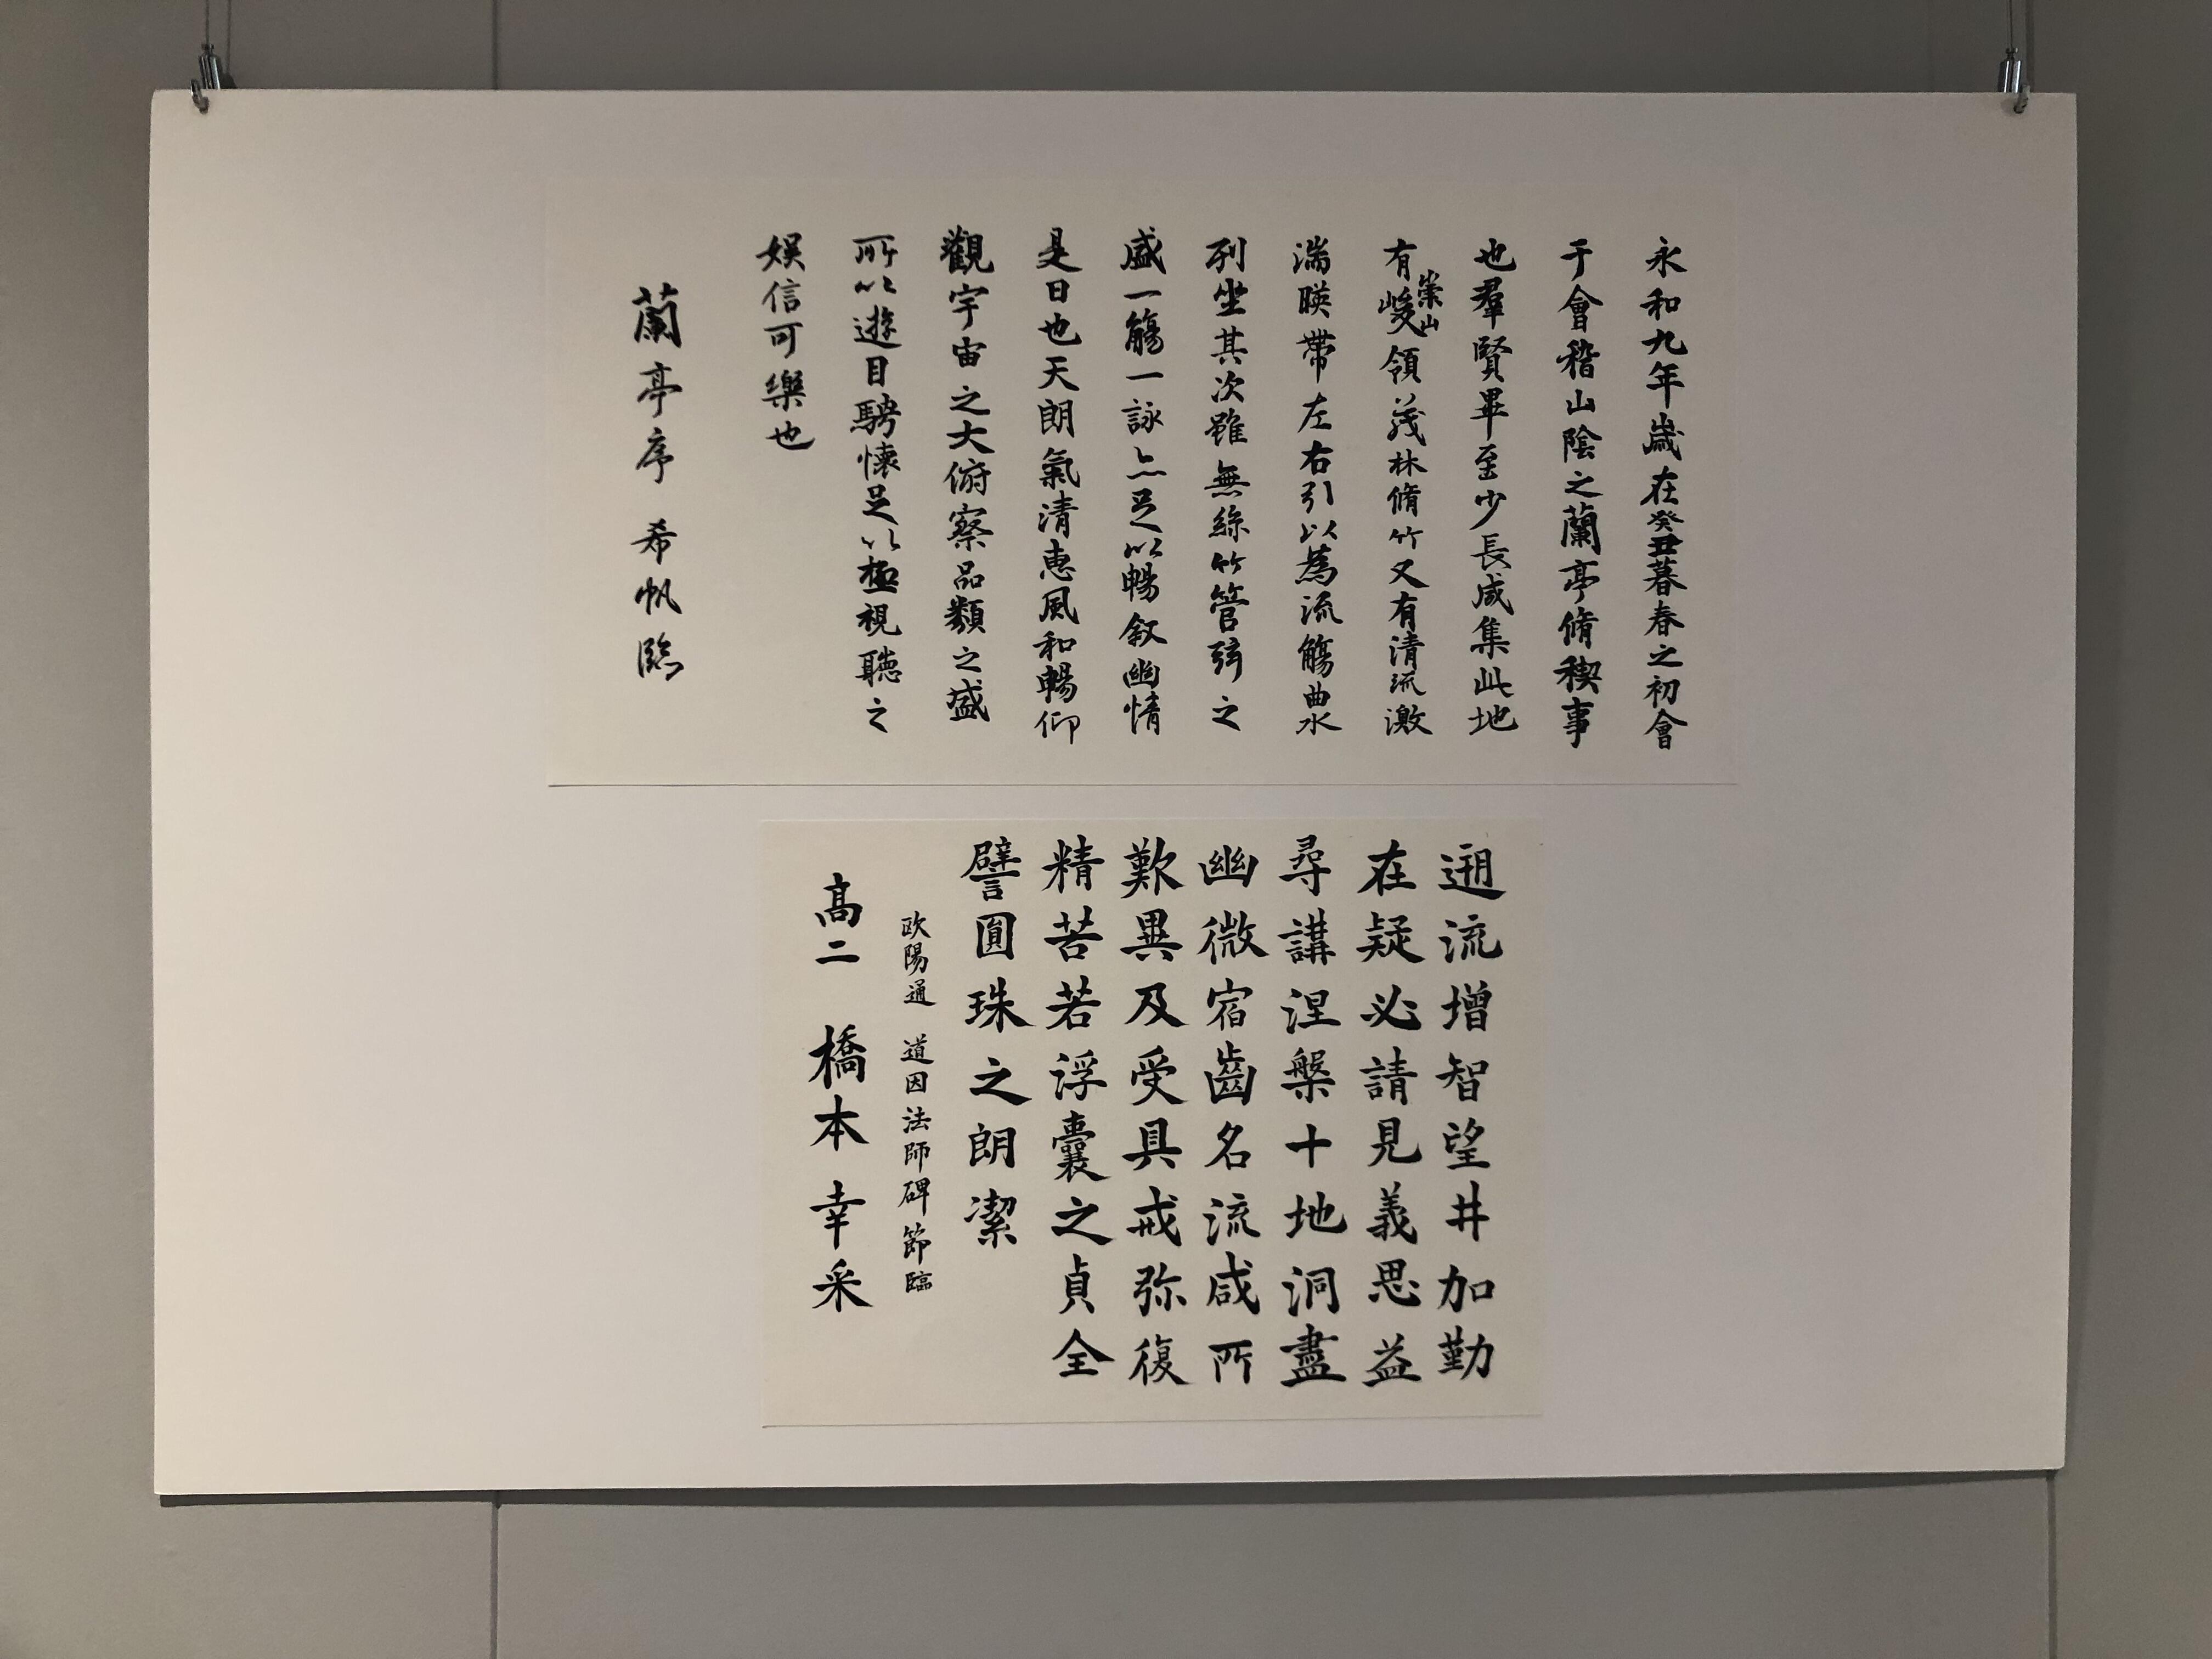 永和九年歳在癸丑暮春之初會
于會稽山陰之蘭亭脩稧事
也羣賢畢至少長咸集此地
有崇山峻領茂林脩竹又有清流激
湍暎帶左右引以為流觴曲水
列坐其次雖無絲竹管弦之
盛一觴一詠亦足以暢叙幽情
是日也天朗氣清恵風和暢仰
觀宇宙之大俯察品類之盛
所以遊目騁懐足以極視聴之
娯信可樂也
蘭亭序 希帆臨
遡流増智望井加勤
在疑必請見義思益
尋講涅槃十地洞盡
幽微宿齒名流咸所
歎異及受具戒弥復
精苦若浮囊之貞全
譬圓珠之朗潔
欧陽通 道因法師碑節臨
髙二 橋本幸采